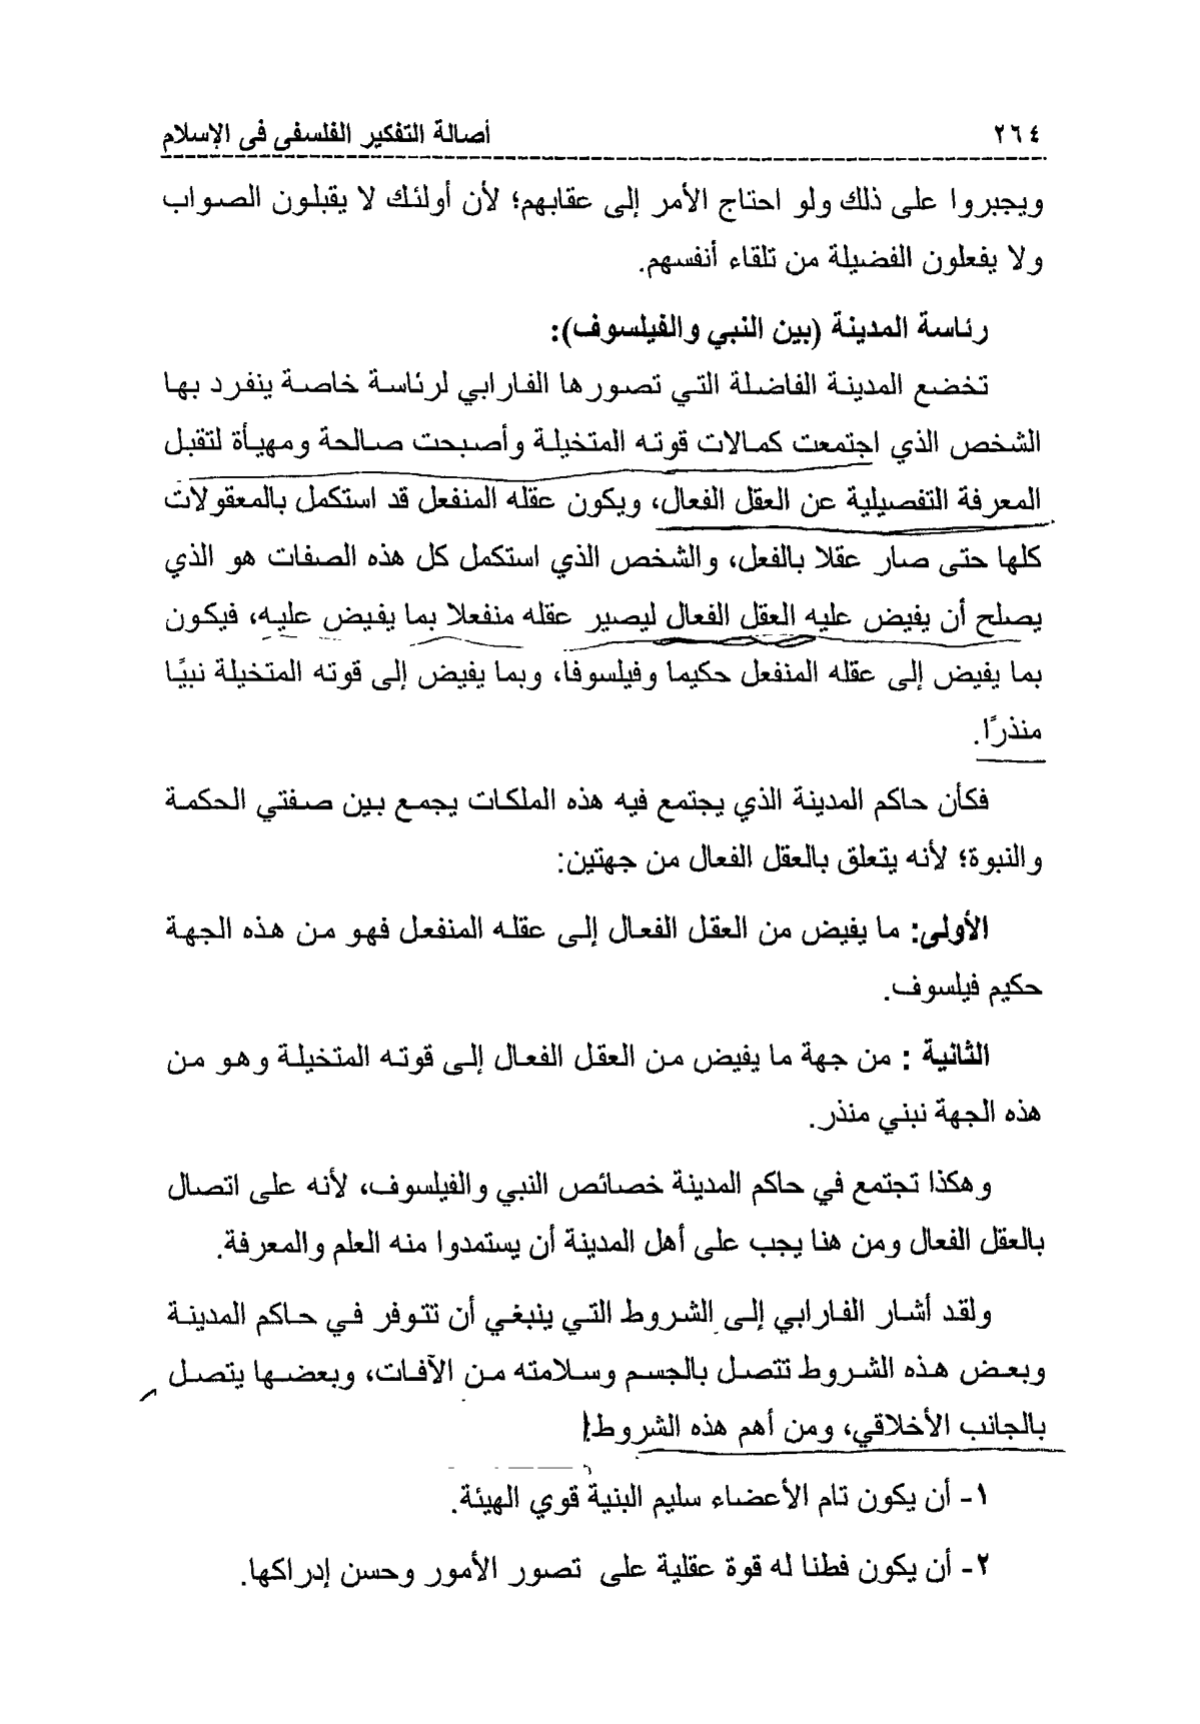 ٢٦٤ أصالة التفكير الفلسفى فى الإسلام
ويجبروا على ذلك ولو احتاج الأمر إلى عقابهم؛ لأن أولئك لا يقبلون الصواب
ولا يفعلون الفضيلة من تلقاء أنفسهم.
رئاسة المدينة (بين النبي والفيلسوف):
تخضع المدينة الفاضلة التي تصورها الفارابي لرئاسة خاصة ينفرد بها
الشخص الذي اجتمعت كمالات قوته المتخيلة وأصبحت صالحة ومهيأة لتقبل
المعرفة التفصيلية عن العقل الفعال، ويكون عقله المنفعل قد استكمل بالمعقولات
كلها حتى صار عقلا بالفعل، والشخص الذي استكمل كل هذه الصفات هو الذي
يصلح أن يفيض عليه العقل الفعال ليصير عقله منفعلا بما يفيض عليه، فيكون
بما يفيض إلى عقله المنفعل حكيما وفيلسوفا، وبما يفيض إلى قوته المتخيلة نبيًا
منذرًا.
فكأن حاكم المدينة الذي يجتمع فيه هذه الملكات يجمع بين صفتي الحكمة
والنبوة؛ لأنه يتعلق بالعقل الفعال من جهتين:
الأولى: ما يفيض من العقل الفعال إلى عقله المنفعل فهو من هذه الجهة
حكيم فيلسوف.
الثانية : من جهة ما يفيض من العقل الفعال إلى قوته المتخيلة وهو من
هذه الجهة نبني منذر.
وهكذا تجتمع في حاكم المدينة خصائص النبي والفيلسوف، لأنه على اتصال
بالعقل الفعال ومن هنا يجب على أهل المدينة أن يستمدوا منه العلم والمعرفة.
ولقد أشار الفارابي إلى الشروط التي ينبغي أن تتوفر في حاكم المدينة
وبعض هذه الشروط تتصل بالجسم وسلامته من الآفات، وبعضها يتصل
بالجانب الأخلاقي، ومن أهم هذه الشروط:
١- أن يكون تام الأعضاء سليم البنية قوي الهيئة.
٢- أن يكون فطنا له قوة عقلية على تصور الأمور وحسن إدراكها.